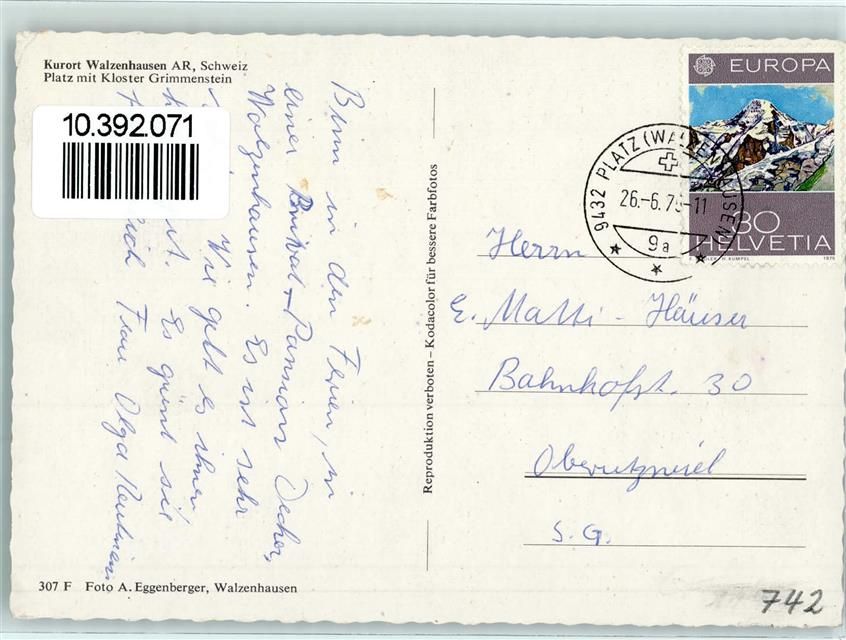 Kurort Walzenhausen AR, Schweiz
Platz mit Kloster Grimmenstein
10.392.071
Bin in den Ferien, in
einer Privat-Pension
Walzenhausen. Es ist sehr
Wie geht es ihnen,
Es grüsst sie
Frau Olga
307 F Foto A. Eggenberger, Walzenhausen
Reproduktion verboten – Kodacolor für bessere Farbfotos
EUROPA
80
HELVETIA
9432 PLATZ (WALZENHAUSEN)
26.-6.75-11
9a
Herrn
E. Matti - Häuser
Bahnhofst. 30
Oberutzwil
S. G.
742